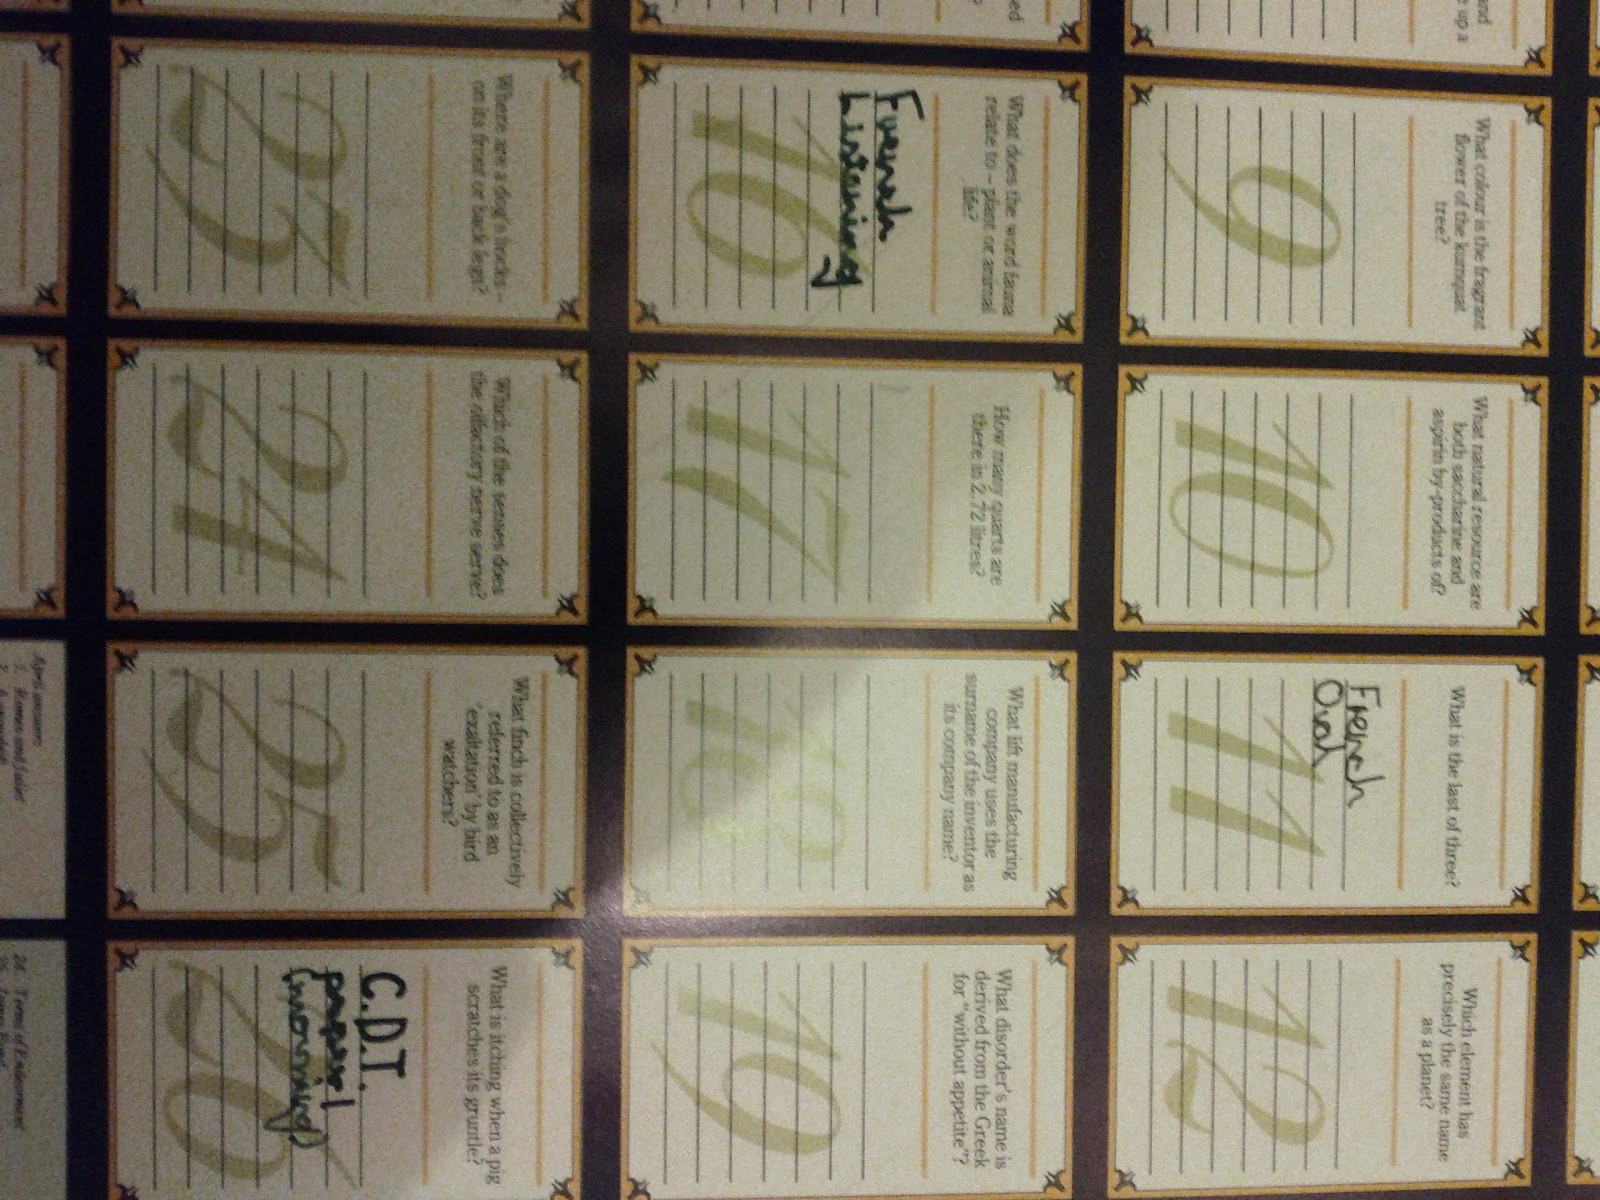 What colour is the fragrant
flower of the kumquat
tree?
9
What natural resource are
both saccharine and
aspirin by-products of?
10
What is the last of three?
French
Oral
11
Which element has
precisely the same name
as a planet?
12
What does the word fauna
relate to – plant or animal
life?
French
Listening
16
How many quarts are
there in 2.72 litres?
17
What lift manufacturing
company uses the
surname of the inventor as
its company name?
18
What disorder's name is
derived from the Greek
for "without appetite"?
19
Where are a dog's hocks –
on its front or back legs?
23
Which of the senses does
the olfactory nerve serve?
24
What finds is collectively
referred to as an
'exaltation' by bird
watchers?
25
What is itching when a pig
scratches its gruntle?
C.D.T.
paper 1
(morning)
26
April answers:
24. Terms of Endearment